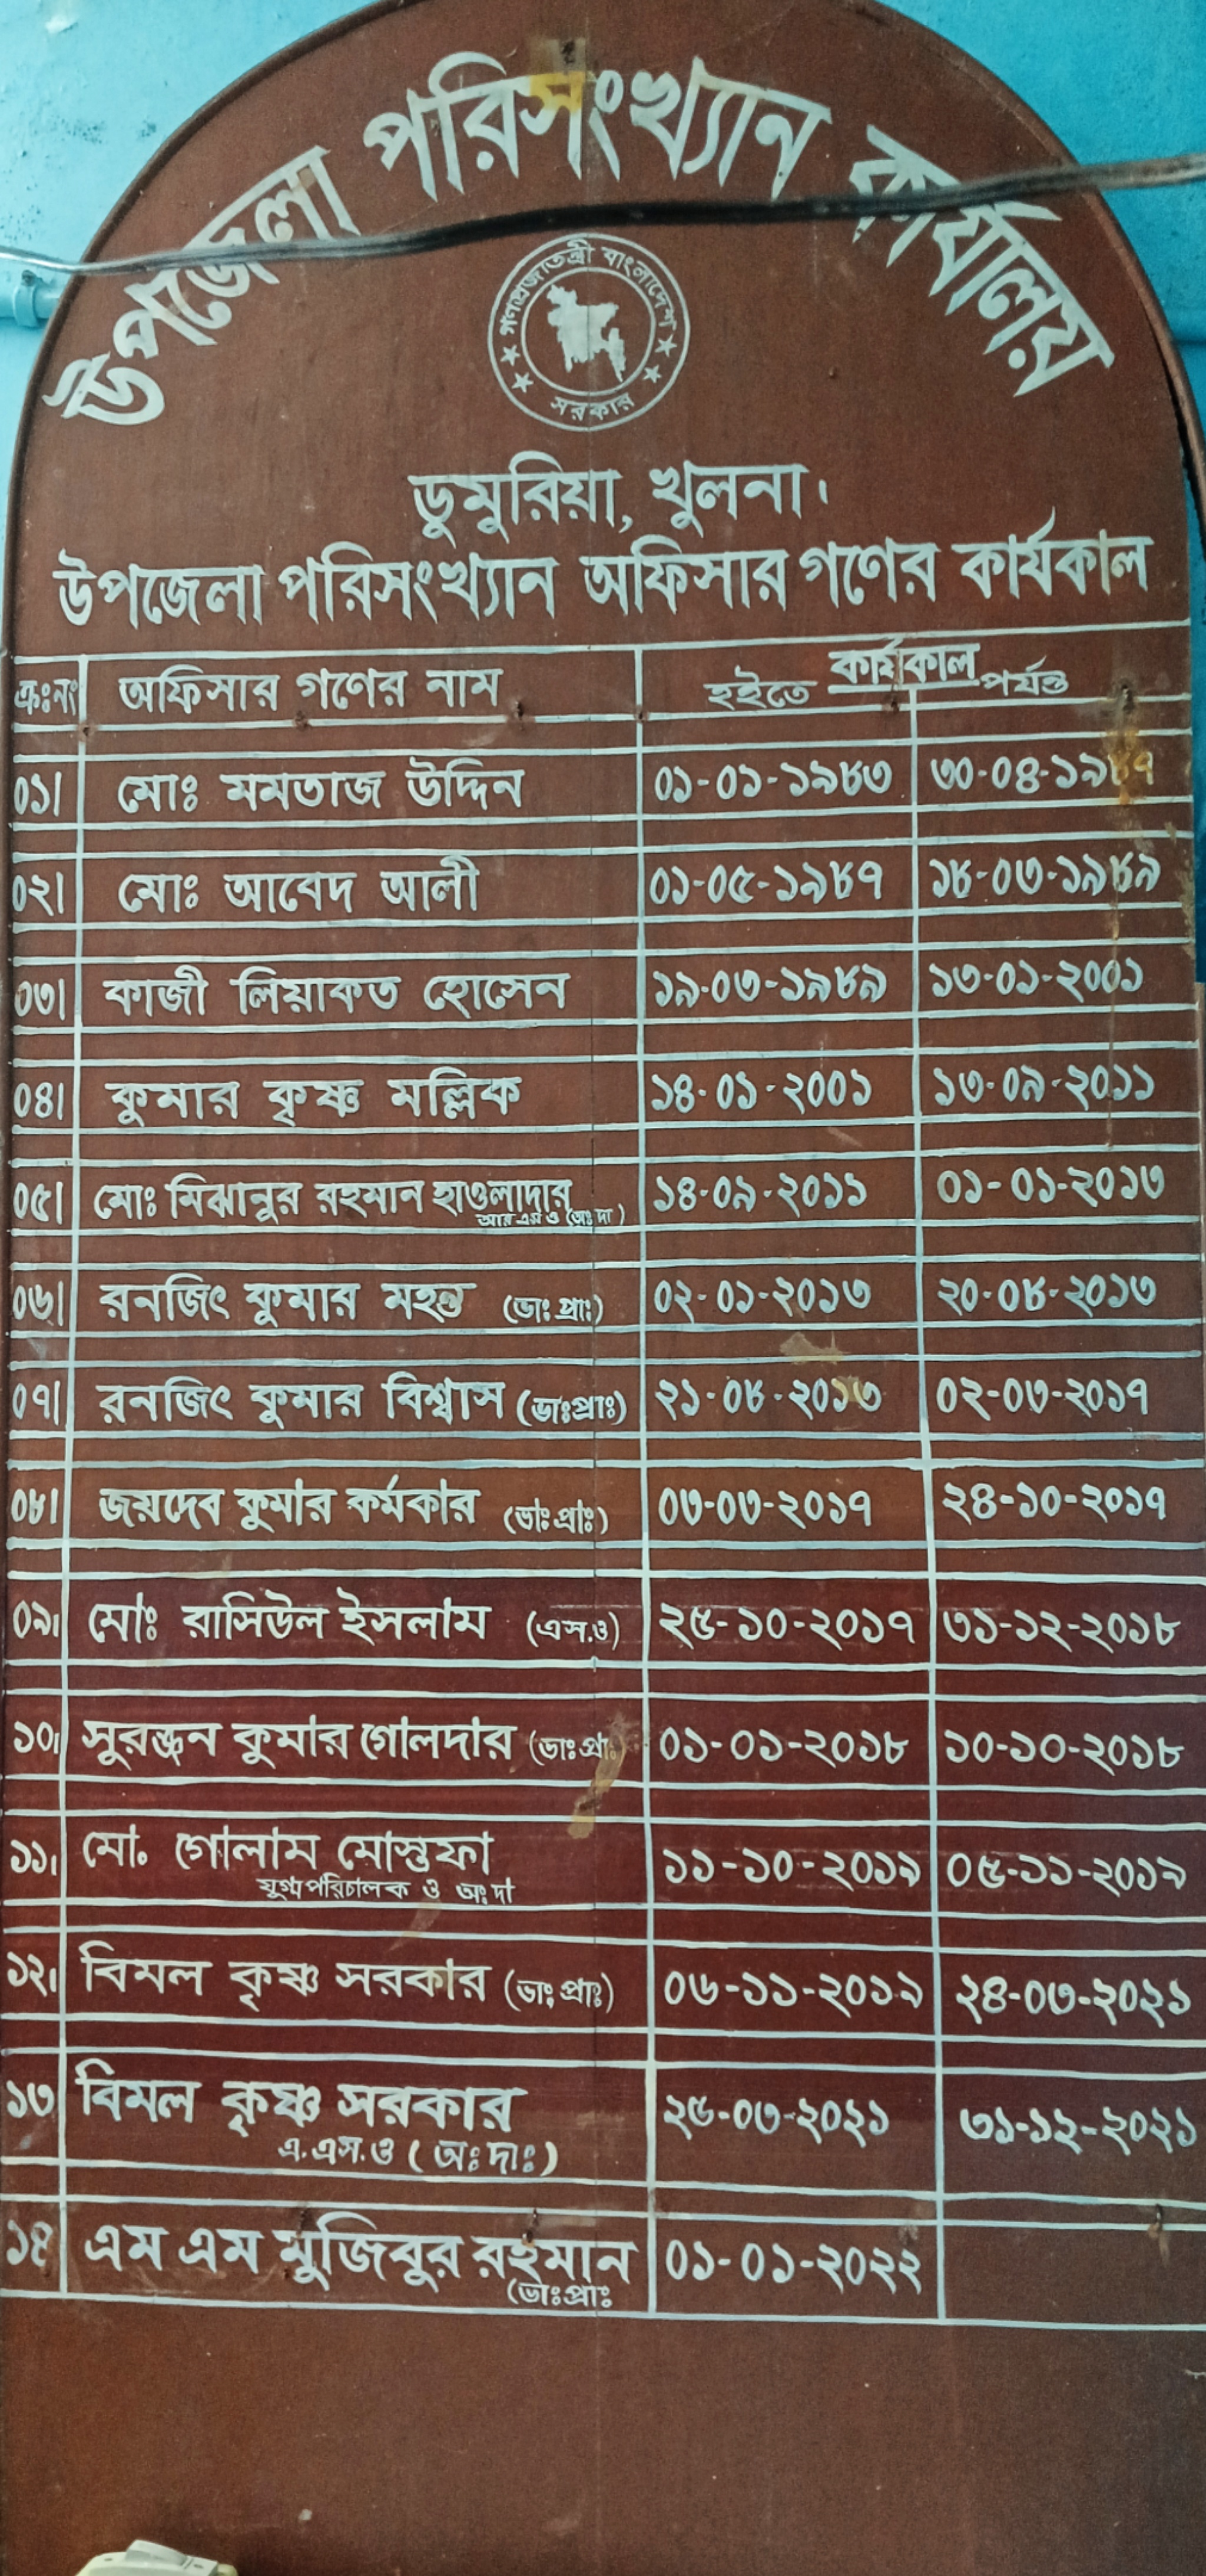 উপজেলা পরিসংখ্যান কার্যালয়
গণপ্রজাতন্ত্রী বাংলাদেশ
সরকার
ডুমুরিয়া, খুলনা।
উপজেলা পরিসংখ্যান অফিসার গণের কার্যকাল
ক্রঃনং অফিসার গণের নাম হইতে কার্যকাল পর্যন্ত
০১। মোঃ মমতাজ উদ্দিন ০১-০১-১৯৮৩ ৩০-০৪-১৯৮৭
০২। মোঃ আবেদ আলী ০১-০৫-১৯৮৭ ১৮-০৩-১৯৮৯
০৩। কাজী লিয়াকত হোসেন ১৯-০৩-১৯৮৯ ১৩-০১-২০০১
০৪। কুমার কৃষ্ণ মল্লিক ১৪-০১-২০০১ ১৩-০৯-২০১১
০৫। মোঃ মিঝানুর রহমান হাওলাদার ১৪-০৯-২০১১ ০১-০১-২০১৩
আর এম ও (অঃ দা)
০৬। রনজিৎ কুমার মহন্ত (ভাঃ প্রাঃ) ০২-০১-২০১৩ ২০-০৮-২০১৩
০৭। রনজিৎ কুমার বিশ্বাস (ভাঃপ্রাঃ) ২১-০৮-২০১৩ ০২-০৩-২০১৭
০৮। জয়দেব কুমার কর্মকার (ভাঃপ্রাঃ) ০৩-০৩-২০১৭ ২৪-১০-২০১৭
০৯। মোঃ রাসিউল ইসলাম (এস.ও) ২৫-১০-২০১৭ ৩১-১২-২০১৮
১০। সুরঞ্জন কুমার গোলদার (ভাঃপ্রাঃ) ০১-০১-২০১৮ ১০-১০-২০১৮
১১। মো. গোলাম মোস্তফা ১১-১০-২০১৯ ০৫-১১-২০১৯
যুগ্মপরিচালক ও অঃ দা
১২। বিমল কৃষ্ণ সরকার (ভাঃ প্রাঃ) ০৬-১১-২০১৯ ২৪-০৩-২০২১
১৩ বিমল কৃষ্ণ সরকার ২৫-০৩-২০২১ ৩১-১২-২০২১
এ.এস.ও ( অঃ দাঃ)
১৪ এম এম মুজিবুর রহমান ০১-০১-২০২২
(ভাঃপ্রাঃ